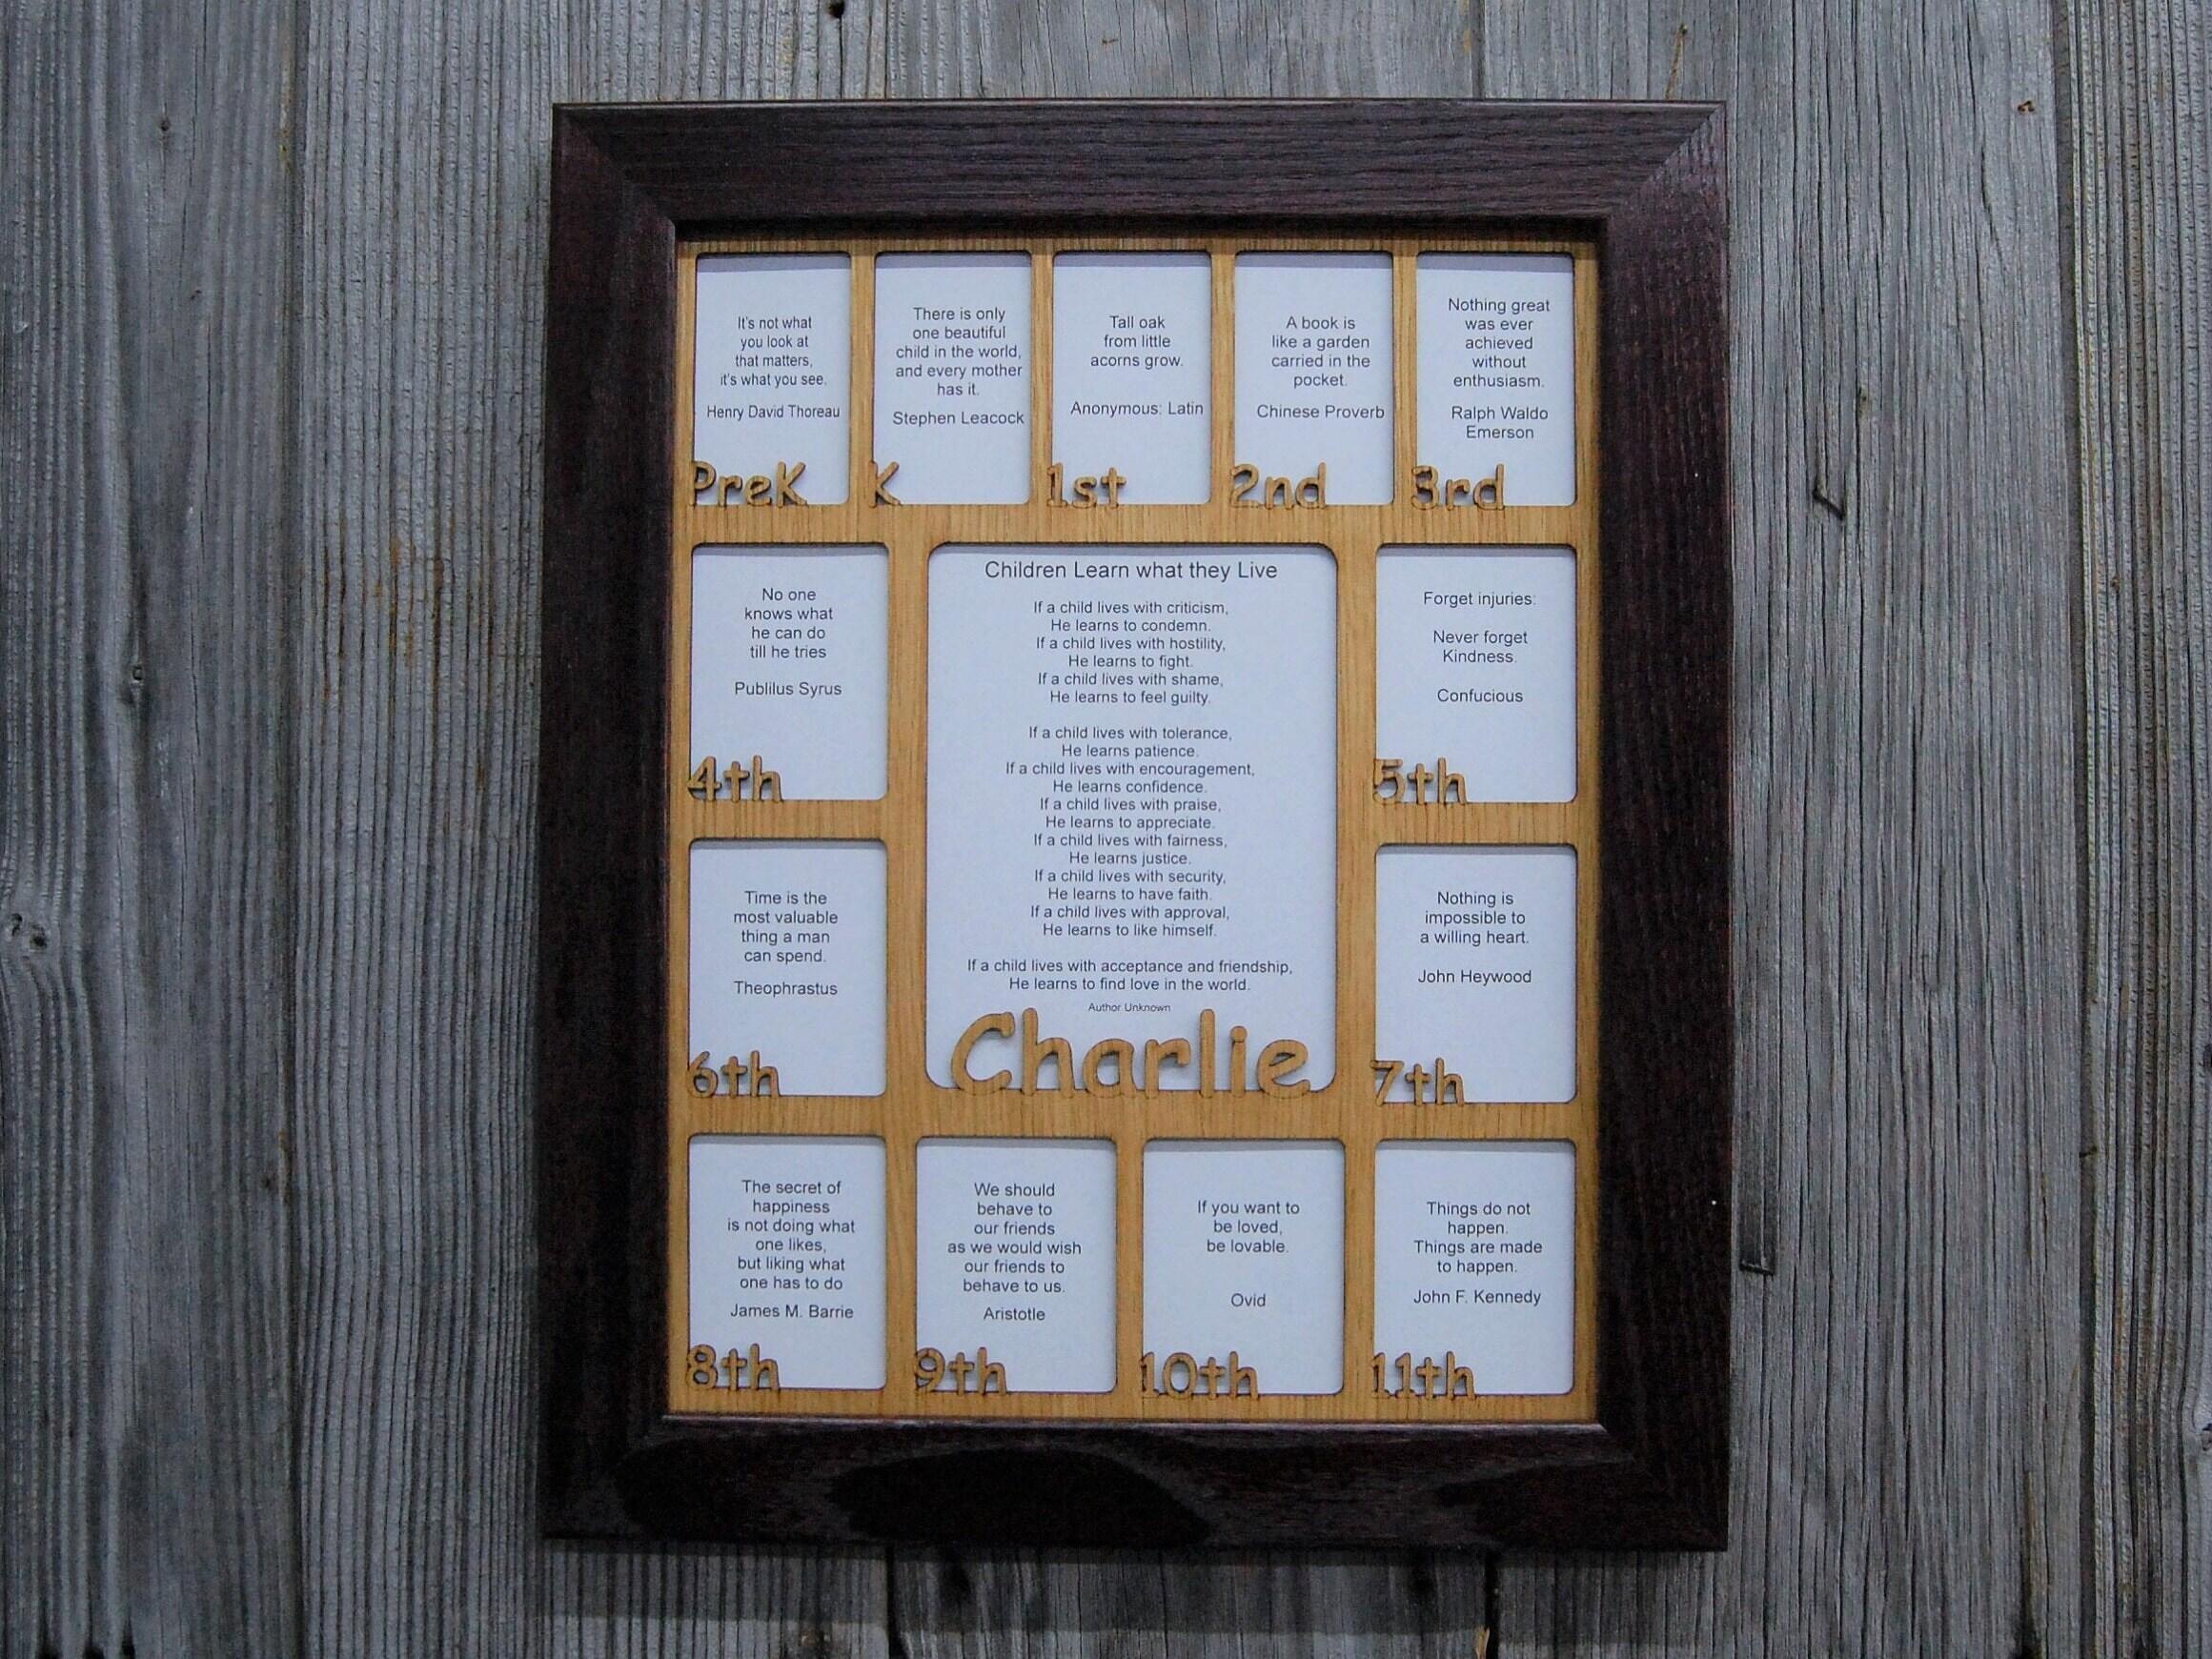 It's not what
you look at
that matters,
it's what you see.
Henry David Thoreau
PreK
There is only
one beautiful
child in the world,
and every mother
has it.
Stephen Leacock
K
Tall oak
from little
acorns grow.
Anonymous: Latin
1st
A book is
like a garden
carried in the
pocket.
Chinese Proverb
2nd
Nothing great
was ever
achieved
without
enthusiasm.
Ralph Waldo
Emerson
3rd
No one
knows what
he can do
till he tries
Publilus Syrus
4th
Children Learn what they Live
If a child lives with criticism,
He learns to condemn.
If a child lives with hostility,
He learns to fight.
If a child lives with shame,
He learns to feel guilty.
If a child lives with tolerance,
He learns patience.
If a child lives with encouragement,
He learns confidence.
If a child lives with praise,
He learns to appreciate.
If a child lives with fairness,
He learns justice.
If a child lives with security,
He learns to have faith.
If a child lives with approval,
He learns to like himself.
If a child lives with acceptance and friendship,
He learns to find love in the world.
Author Unknown
Charlie
Forget injuries:
Never forget
Kindness.
Confucious
5th
Time is the
most valuable
thing a man
can spend.
Theophrastus
6th
Nothing is
impossible to
a willing heart.
John Heywood
7th
The secret of
happiness
is not doing what
one likes,
but liking what
one has to do
James M. Barrie
8th
We should
behave to
our friends
as we would wish
our friends to
behave to us.
Aristotle
9th
If you want to
be loved,
be lovable.
Ovid
10th
Things do not
happen.
Things are made
to happen.
John F. Kennedy
11th